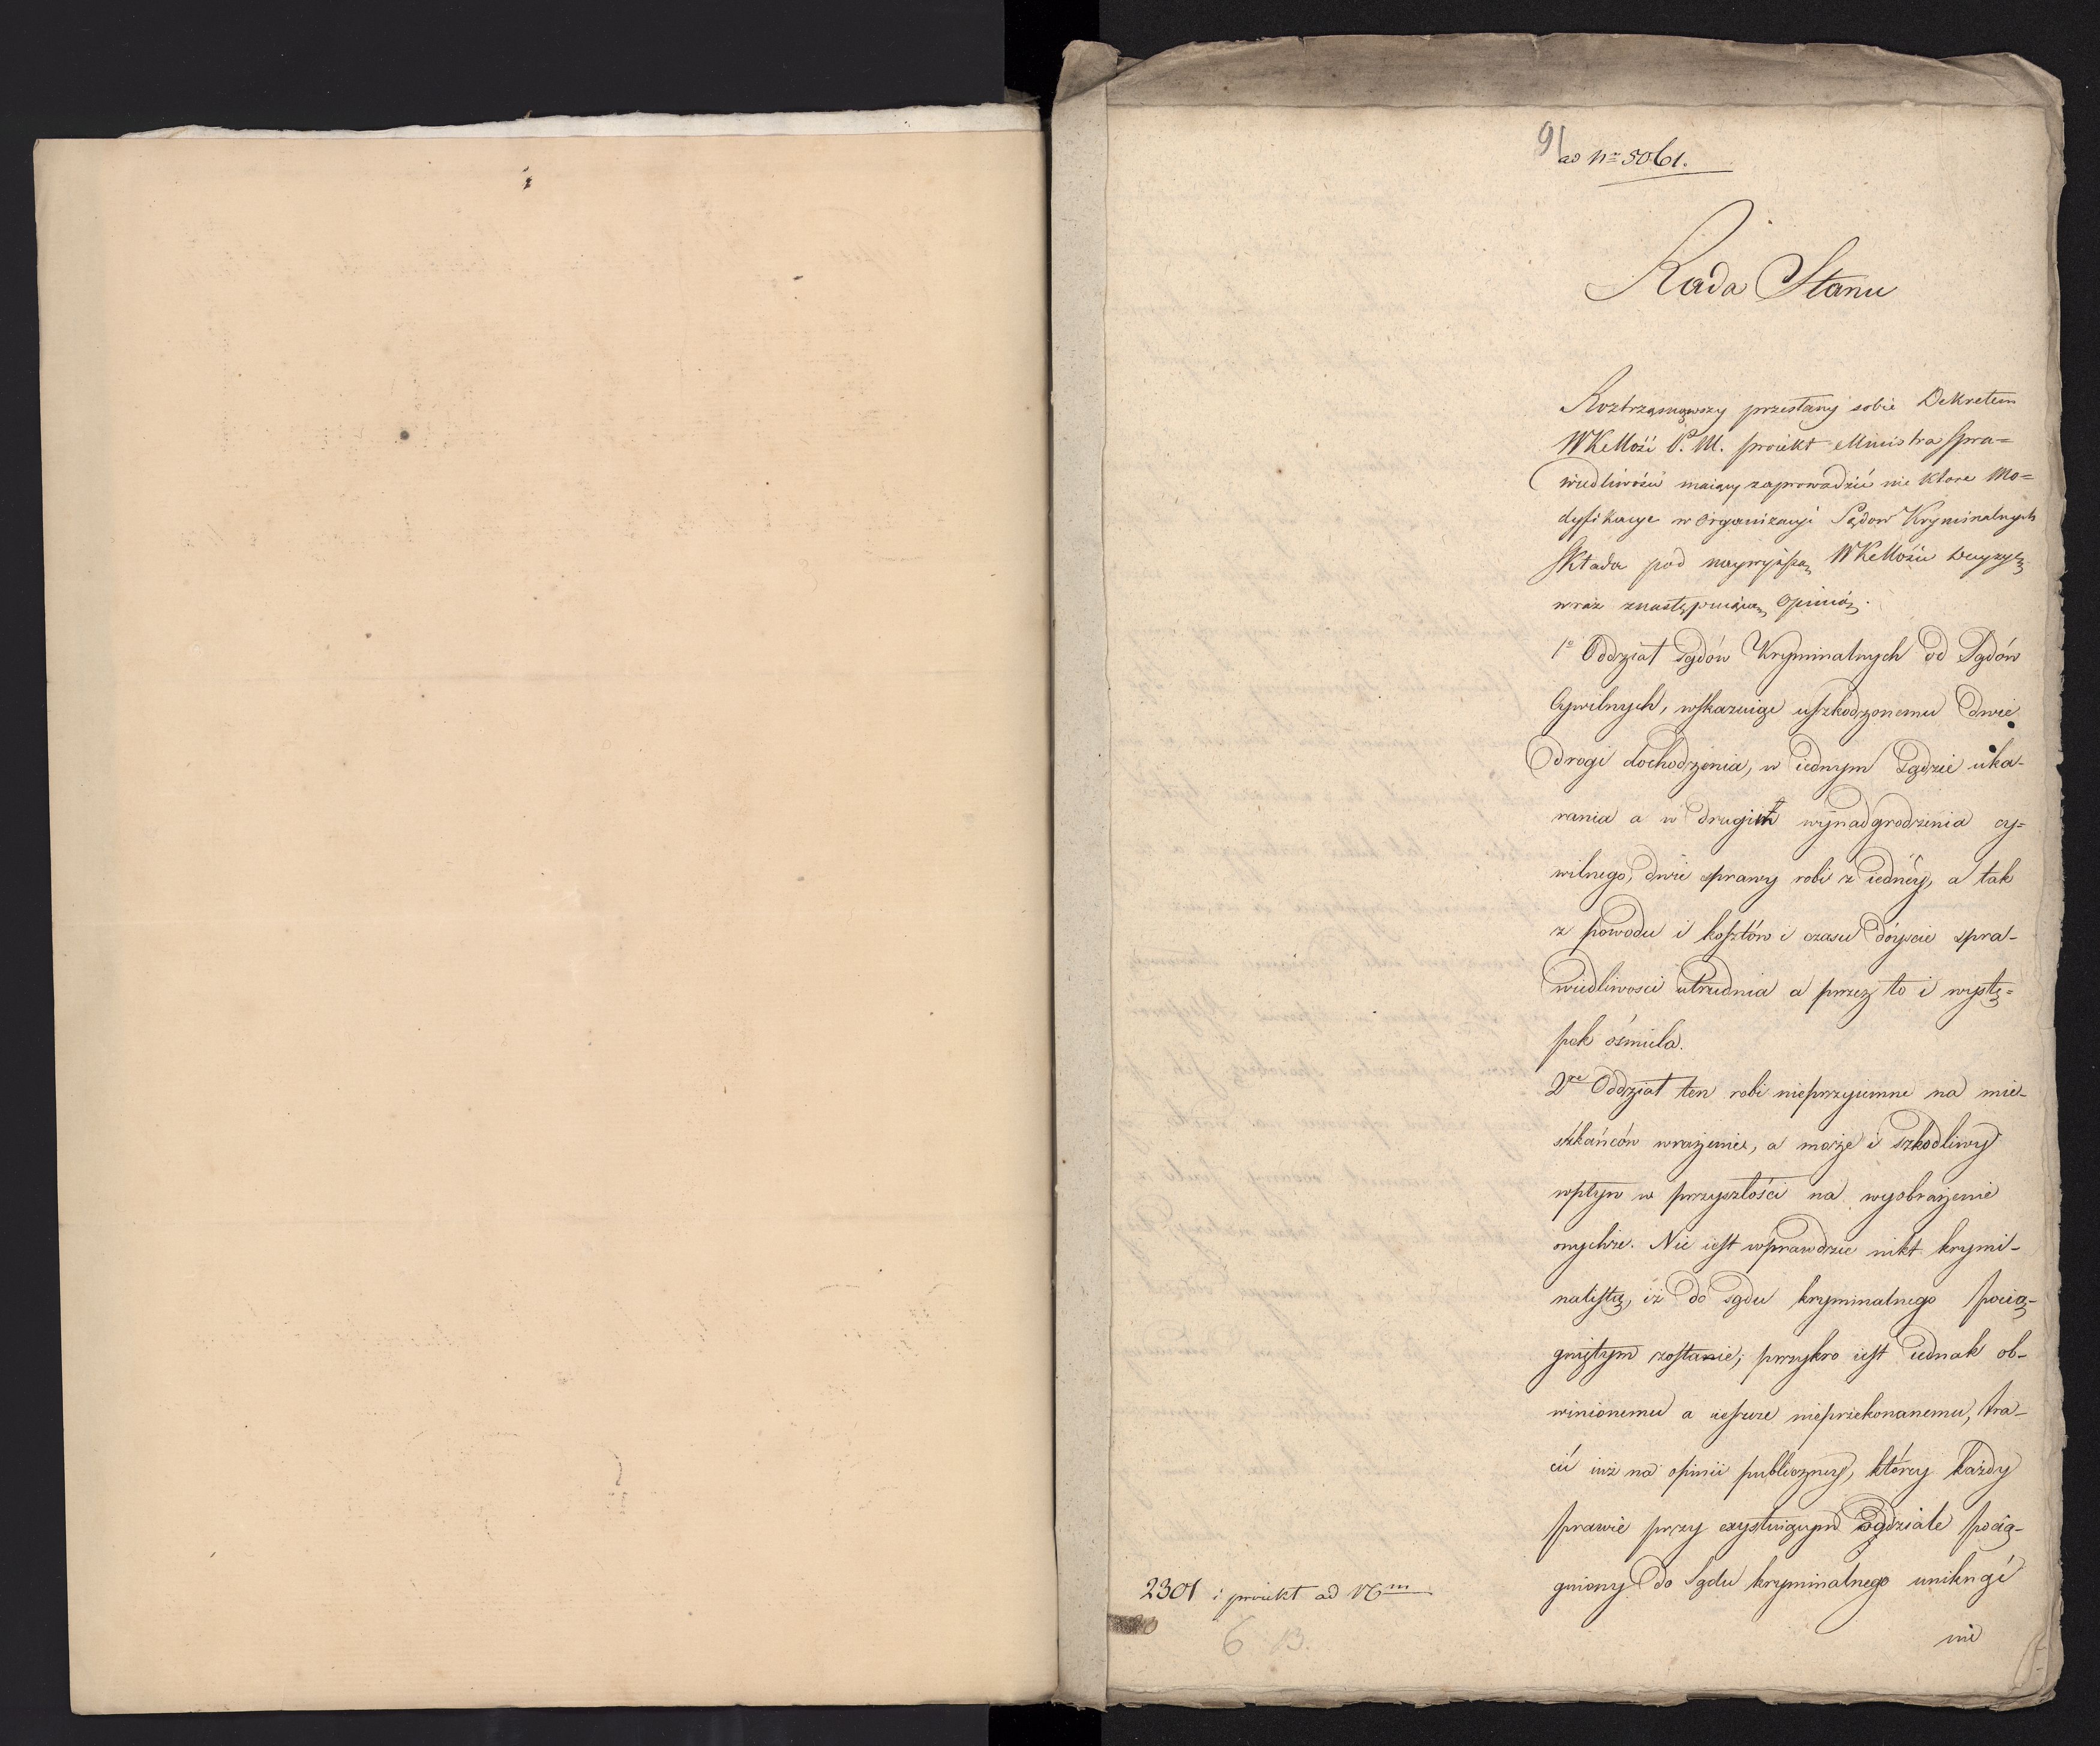 91
ad Nr 5061.
Rada Stanu
Roztrząsnąwszy przesłany sobie Dekretem
WKeMości P. M. proiekt Ministra Spra=
wiedliwości maiący zaprowadzić nie ktore Mo=
dyfikacye w Organizacyi Sądow Kryminalnych
składa pod naywyższą WKeMości Decyzyę
wraz znastępuiącą Opinią.
1o Oddział sądów Kryminalnych od Sądów
Cywilnych, wskazuiąc uszkodzonemu dwie
drogi dochodzenia, w iednym Sądzie uka-
rania a w drugim wynadgrodzenia cy=
wilnego, dwie sprawy robi z iedney, a tak
z powodu i kosztów i czasu dóyscie spra-
wiedliwosci utrudnia a przez to i wystę=
pek ośmiela.
2re Oddział ten robi nieprzyiemne na mie-
szkańców wrażenie, a może i szkodliwy
wpływ w przyszłości na wyobrażenie
onychże. Nie iest wprawdzie nikt krymi-
nalistą, iż do sądu kryminalnego pocią-
gniętym zostanie; przykro iest iednak ob-
winionemu a ieszcze nieprzekonanemu, tra-
cić iuż na opinii publiczney, którey każdy
prawie przy exystuiącym Oddziale pocią-
gniony do Sądu kryminalnego uniknąć
nie
2301 i proiekt ad
6 13.